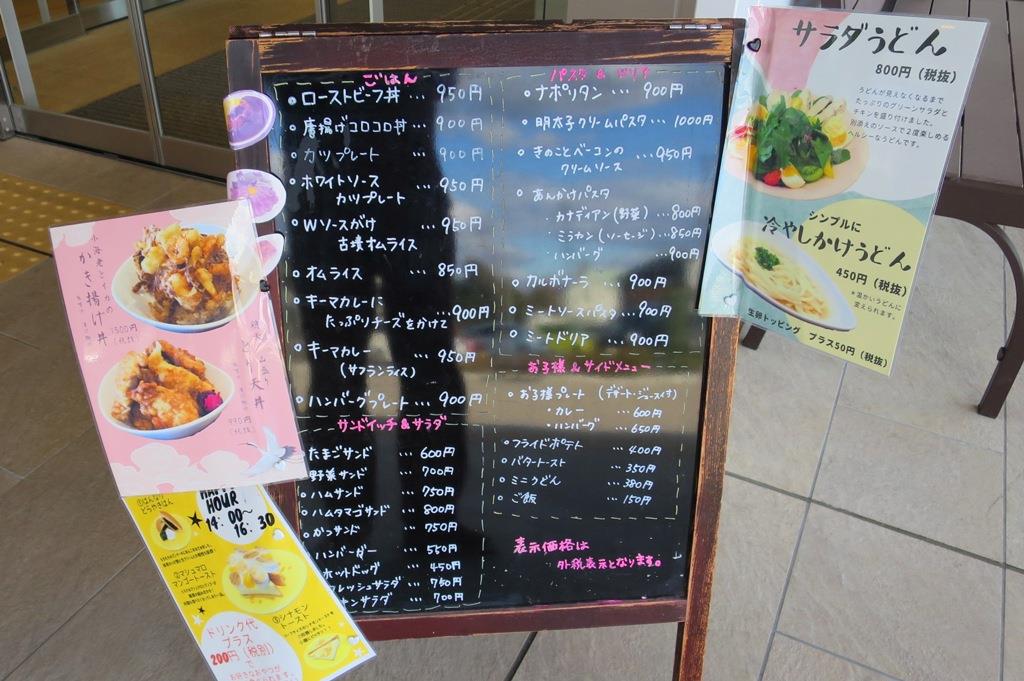 ごはん
ローストビーフ丼 … 950円
唐揚げコロコロ丼 … 900円
カツプレート … 900円
ホワイトソース
カツプレート … 950円
Wソースがけ … 950円
古墳オムライス
オムライス … 850円
キーマカレーに
たっぷりチーズをかけて … 900円
キーマカレー … 950円
(サフランライス)
ハンバーグプレート … 900円
サンドイッチ&サラダ
たまごサンド … 600円
野菜サンド … 700円
ハムサンド … 750円
ハムタマゴサンド … 800円
カツサンド … 750円
ハンバーガー … 550円
ホットドッグ … 450円
フレッシュサラダ … 750円
サラダ … 700円
パスタ &
ナポリタン … 900円
明太子クリームパスタ … 1000円
きのことベーコンの … 950円
クリームソース
あんかけパスタ
・カナディアン(野菜) … 800円
・ミラカン(ソーセージ) … 850円
・ハンバーグ … 900円
カルボナーラ … 900円
ミートソースパスタ … 900円
ミートドリア … 900円
お子様 & サイドメニュー
お子様プレート (デザート・ジュース付)
・カレー … 600円
・ハンバーグ … 650円
フライドポテト … 400円
バタートースト … 350円
ミニうどん … 380円
ご飯 … 150円
表示価格は
外税表示となります。
サラダうどん
800円(税抜)
うどんが見えなくなるまで
たっぷりのグリーンサラダと
チキンを盛り付けました。
別添えのソースで2度楽しめる
ヘルシーなうどんです。
シンプルに
冷やしかけうどん
450円(税抜)
*温かいうどんに
変えられます。
生卵トッピング プラス50円(税抜)
小海老とイカの
かき揚げ丼
(税抜)
とり天丼
990円
(税抜)
HAPPY
HOUR
14:00〜
16:30
どらやきぱん
②マシュマロ
マンゴートースト
③シナモン
トースト
ドリンク代
プラス
200円(税別)
で